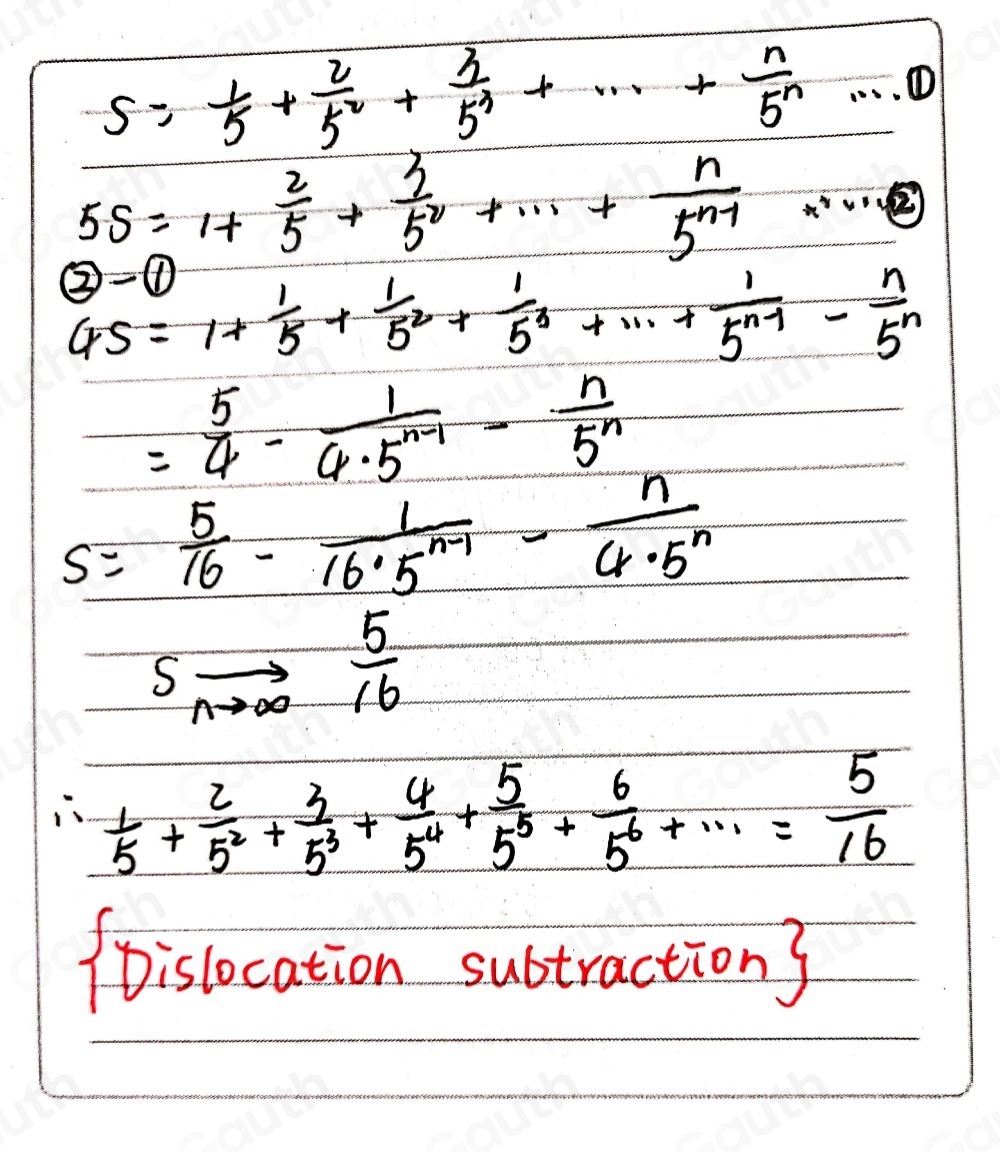 S = 1/5 + 2/5² + 3/5³ + ... + n/5ⁿ ....①
5S = 1 + 2/5 + 3/5² + ... + n/5ⁿ⁻¹ ......②
② - ①
4S = 1 + 1/5 + 1/5² + 1/5³ + ... + 1/5ⁿ⁻¹ - n/5ⁿ
= 5/4 - 1/(4·5ⁿ⁻¹) - n/5ⁿ
S = 5/16 - 1/(16·5ⁿ⁻¹) - n/(4·5ⁿ)
S ⟶ 5/16
n→∞
∴ 1/5 + 2/5² + 3/5³ + 4/5⁴ + 5/5⁵ + 6/5⁶ + ... = 5/16
{Dislocation subtraction}
Gauth